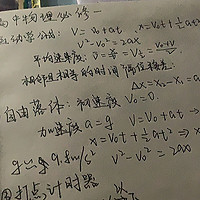 高中物理必修一
运动学公式: V = V₀ + at, x = V₀t + ½a
V² - V₀² = 2ax
平均速度: V̄ = x/t = V_t/2 = (V₀+V)/2
相邻相等的时间
Δx = X₂ - X₁ = a
自由落体: 初速度 V₀ = 0.
加速度 a = g V = V₀ + at →
x = V₀t + ½at² →
g = 9.8m/s² V² - V₀² = 2ax
打点计时器